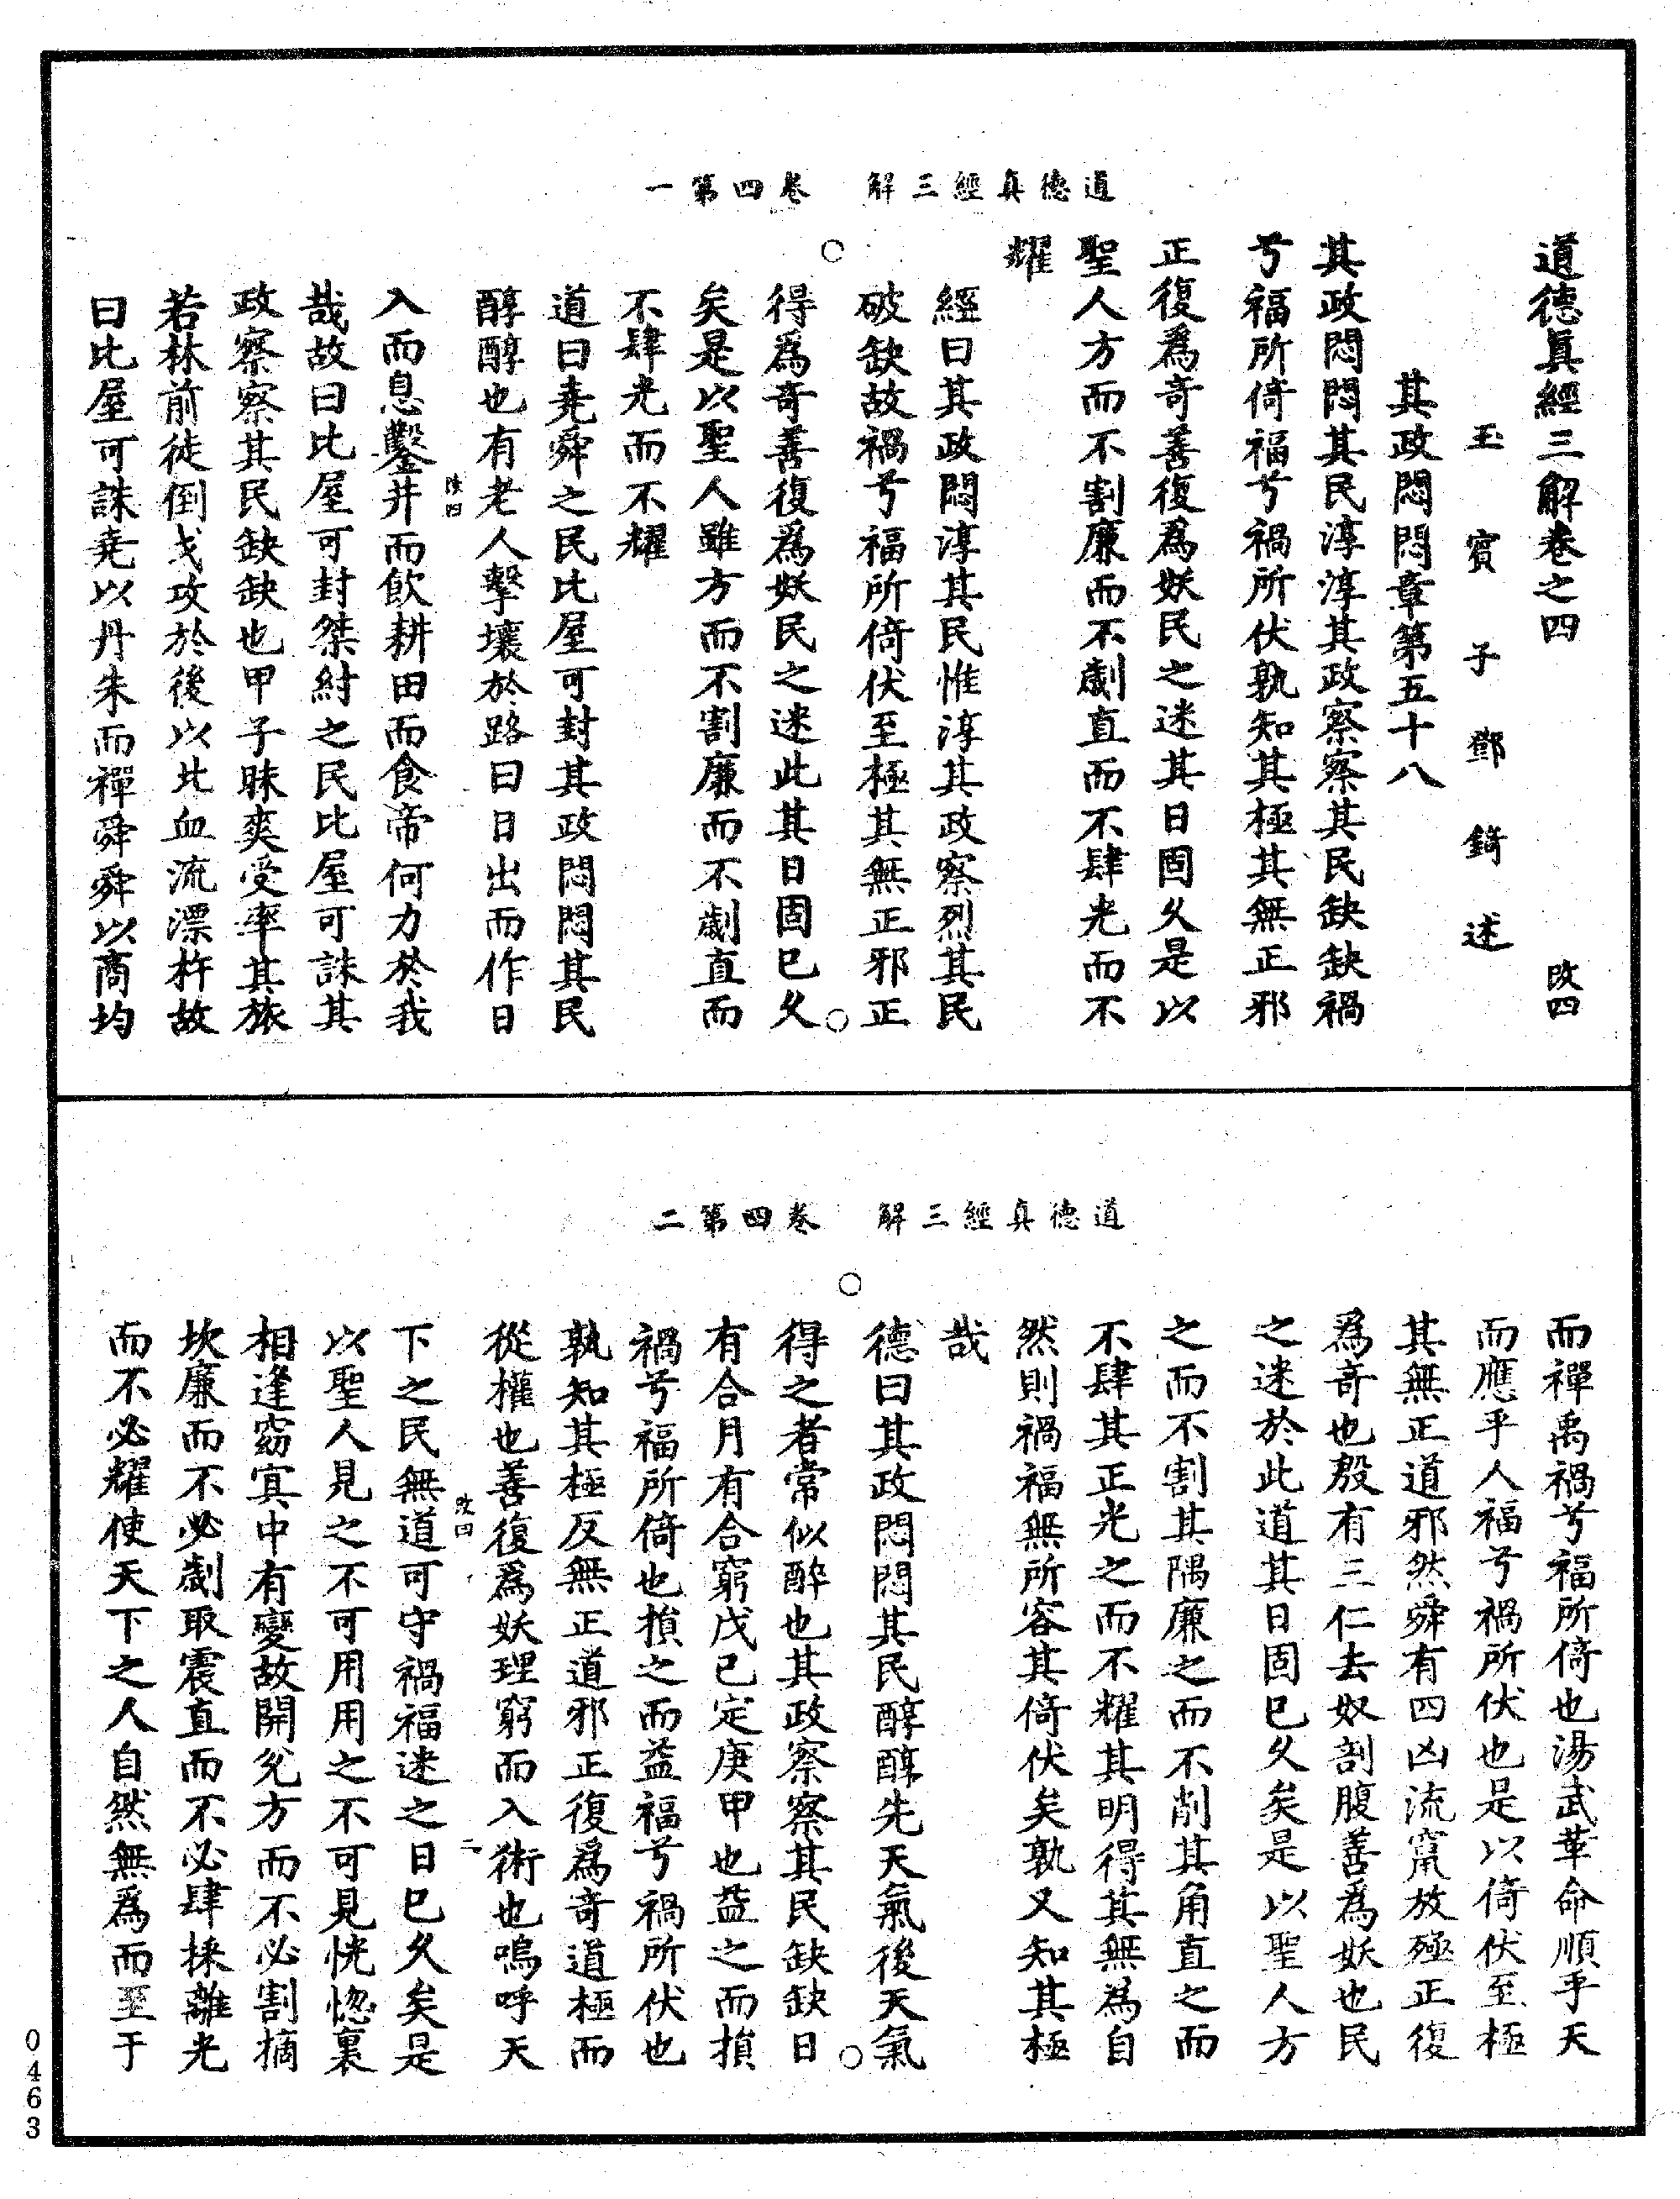 道德真經三解　卷四第一
道德眞經三解卷之四　改四
玉賓子鄧錡述
其政悶悶章第五十八
其政悶悶其民淳淳其政察察其民缺缺禍
兮福所倚福兮禍所伏孰知其極其無正邪
正復爲奇善復爲妖民之迷其日固久是以
聖人方而不割廉而不劌直而不肆光而不
耀
經曰其政悶淳其民惟淳其政察烈其民
破缺故禍兮福所倚伏至極其無正邪正
得爲奇善復爲妖民之迷此其日固已久
矣是以聖人雖方而不割廉而不劌直而
不肆光而不耀
道曰堯舜之民比屋可封其政悶悶其民
醇醇也有老人擊壤於路曰日出而作日
入而息鑿井而飲耕田而食帝何力於我
哉故曰比屋可封桀紂之民比屋可誅其
政察察其民缺缺也甲子昧爽受率其旅
若林前徒倒戈攻於後以北血流漂杵故
曰比屋可誅堯以丹朱而禪舜舜以商均
道德真經三解　卷四第二
而禪禹禍兮福所倚也湯武革命順乎天
而應乎人福兮禍所伏也是以倚伏至極
其無正道邪然舜有四凶流竄放殛正復
爲奇也殷有三仁去奴剖腹善爲妖也民
之迷於此道其日固已久矣是以聖人方
之而不割其隅廉之而不削其角直之而
不肆其正光之而不耀其明得其無為自
然則禍福無所容其倚伏矣孰又知其極
哉
德曰其政悶悶其民醇醇先天氣後天氣
得之者常似醉也其政察察其民缺缺日
有合月有合窮戊已定庚甲也益之而損
禍兮福所倚也損之而益福兮禍所伏也
孰知其極反無正道邪正復爲奇道極而
從權也善復爲妖理窮而入術也嗚呼天
下之民無道可守禍福迷之日已久矣是
以聖人見之不可用用之不可見恍惚裏
相逢窈冥中有變故開兌方而不必割摘
坎廉而不必劌取震直而不必肆採離光
而不必耀使天下之人自然無爲而至于
0463